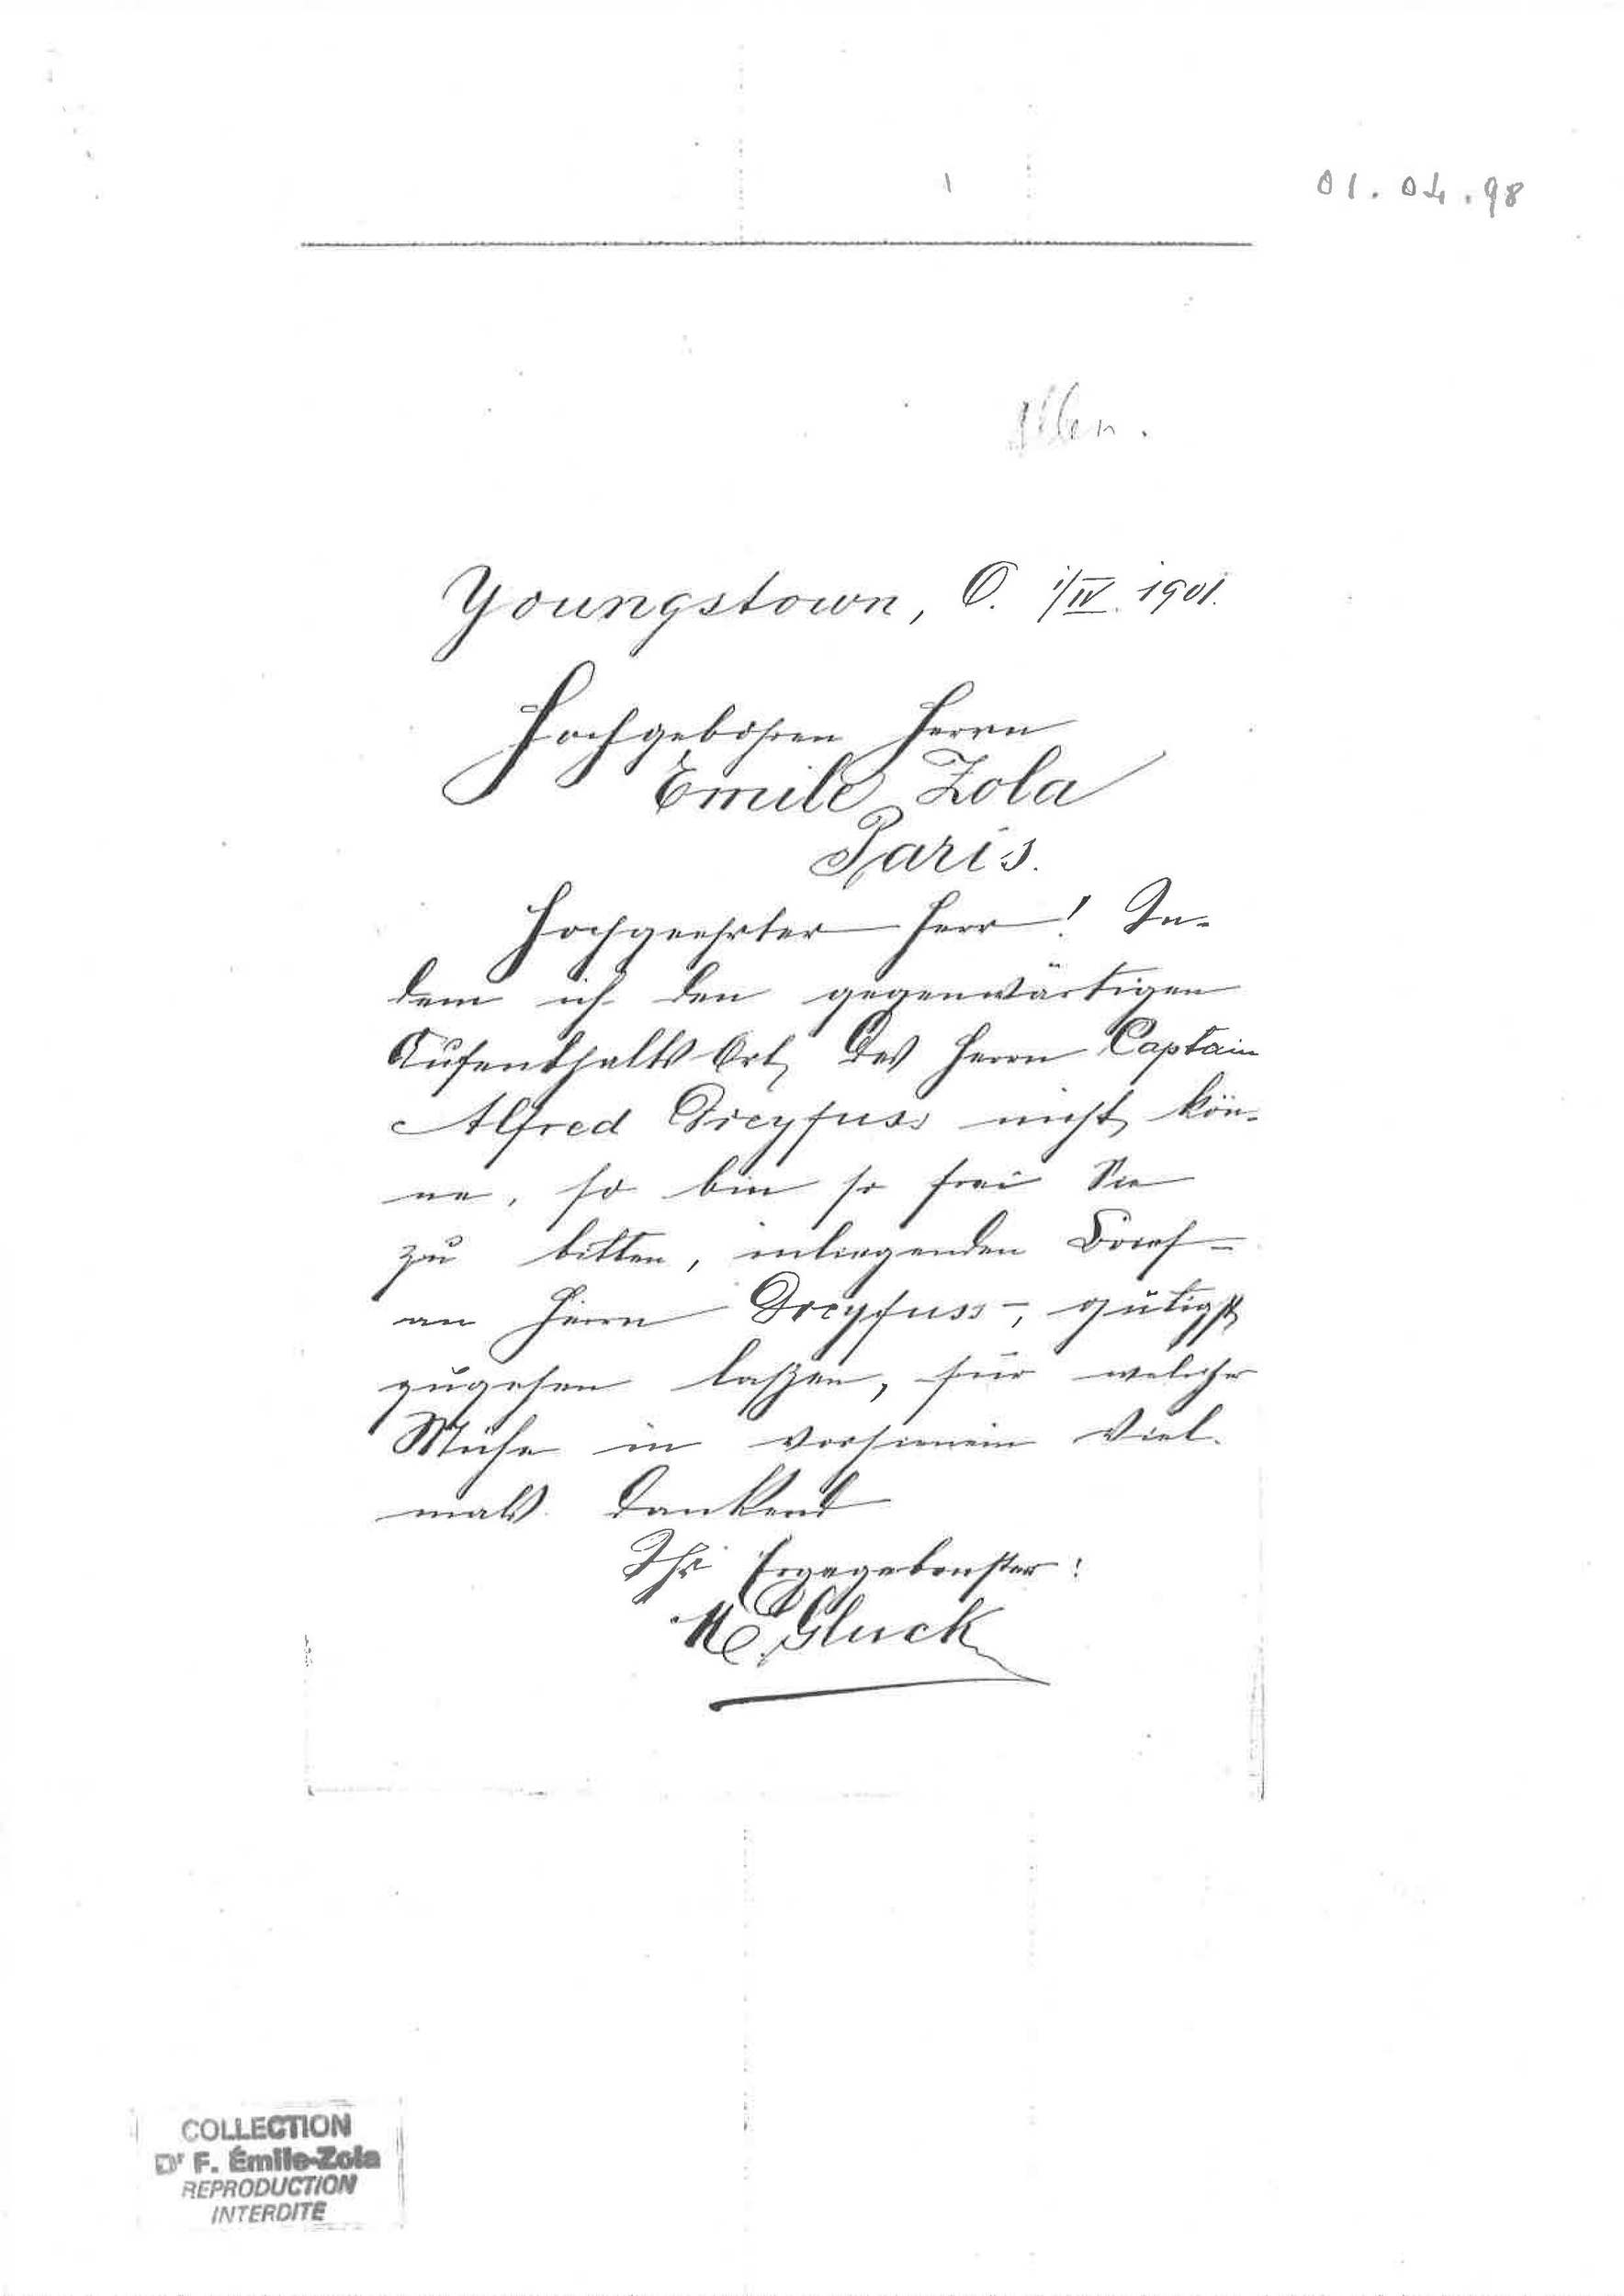 01.04.98
Allem.
Youngstown, O. 1/IV. 1901.
Hochgebohren Herrn
Emile Zola
Paris.
Hochgeehrter Herr! In-
dem ich den gegenwärtigen
Aufenthalts Ort, des Herrn Captain
Alfred Dreyfuss nicht kön-
ne, so bin so frei Sie
zu bitten, inliegenden Brief-
an Herrn Dreyfuss-, gütigst
zugehen laßen, für welche
Mühe in vorhienein Viel-
mals dankend
Ihr Ergegebenster:
M. Gluck
COLLECTION
Dr F. Émile-Zola
REPRODUCTION
INTERDITE